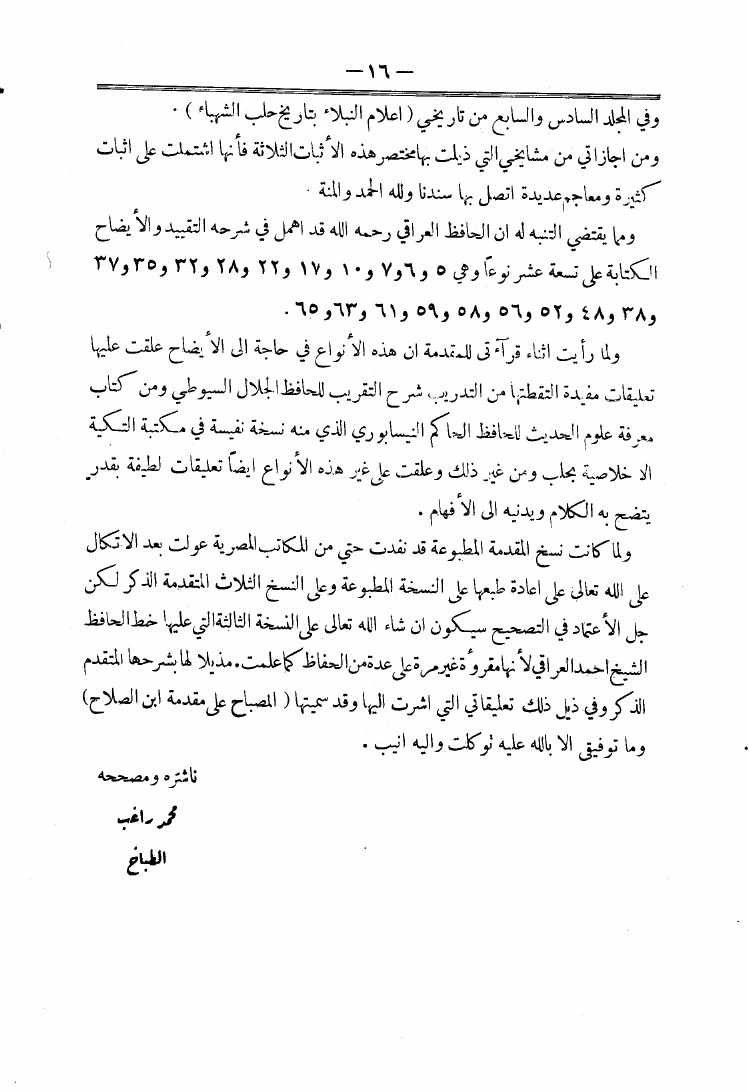 — ١٦ —
وفي المجلد السادس والسابع من تاريخي ( اعلام النبلاء بتاريخ حلب الشهباء ) .
ومن اجازاتي من مشايخي التي ذيلت بها مختصر هذه الأثبات الثلاثة فأنها اشتملت على اثبات
كثيرة ومعاجم عديدة اتصل بها سندنا ولله الحمد والمنة .
ومما يقتضي التنبه له ان الحافظ العراقي رحمه الله قد اهمل في شرحه التقييد والأيضاح
الكتابة على تسعة عشر نوعاً وهي ٥ و٦ و٧ و١٠ و١٧ و٢٢ و٢٨ و٣٢ و٣٥ و٣٧
و٣٨ و٤٨ و٥٢ و٥٦ و٥٨ و٥٩ و٦١ و٦٣ و٦٥ .
ولما رأيت اثناء قرآءتي للمقدمة ان هذه الأنواع في حاجة الى الأيضاح علقت عليها
تعليقات مفيدة التقطتها من التدريب شرح التقريب للحافظ الجلال السيوطي ومن كتاب
معرفة علوم الحديث للحافظ الحاكم النيسابوري الذي منه نسخة نفيسة في مكتبة التكية
الاخلاصية بحلب ومن غير ذلك وعلقت على غير هذه الأنواع ايضاً تعليقات لطيفة بقدر
يتضح به الكلام ويدنيه الى الأفهام .
ولما كانت نسخ المقدمة المطبوعة قد نفدت حتي من المكاتب المصرية عولت بعد الاتكال
على الله تعالى على اعادة طبعها على النسخة المطبوعة وعلى النسخ الثلاث المتقدمة الذكر لكن
جل الأعتماد في التصحيح سيكون ان شاء الله تعالى على النسخة الثالثة التي عليها خط الحافظ
الشيخ احمد العراقي لأنها مقروأة غير مرة على عدة من الحفاظ كما علمت . مذيلا لها بشرحها المتقدم
الذكر وفي ذيل ذلك تعليقاتي التي اشرت اليها وقد سميتها ( المصباح على مقدمة ابن الصلاح )
وما توفيقي الا بالله عليه توكلت واليه انيب .
ناشره ومصححه
محمد راغب
الطباخ